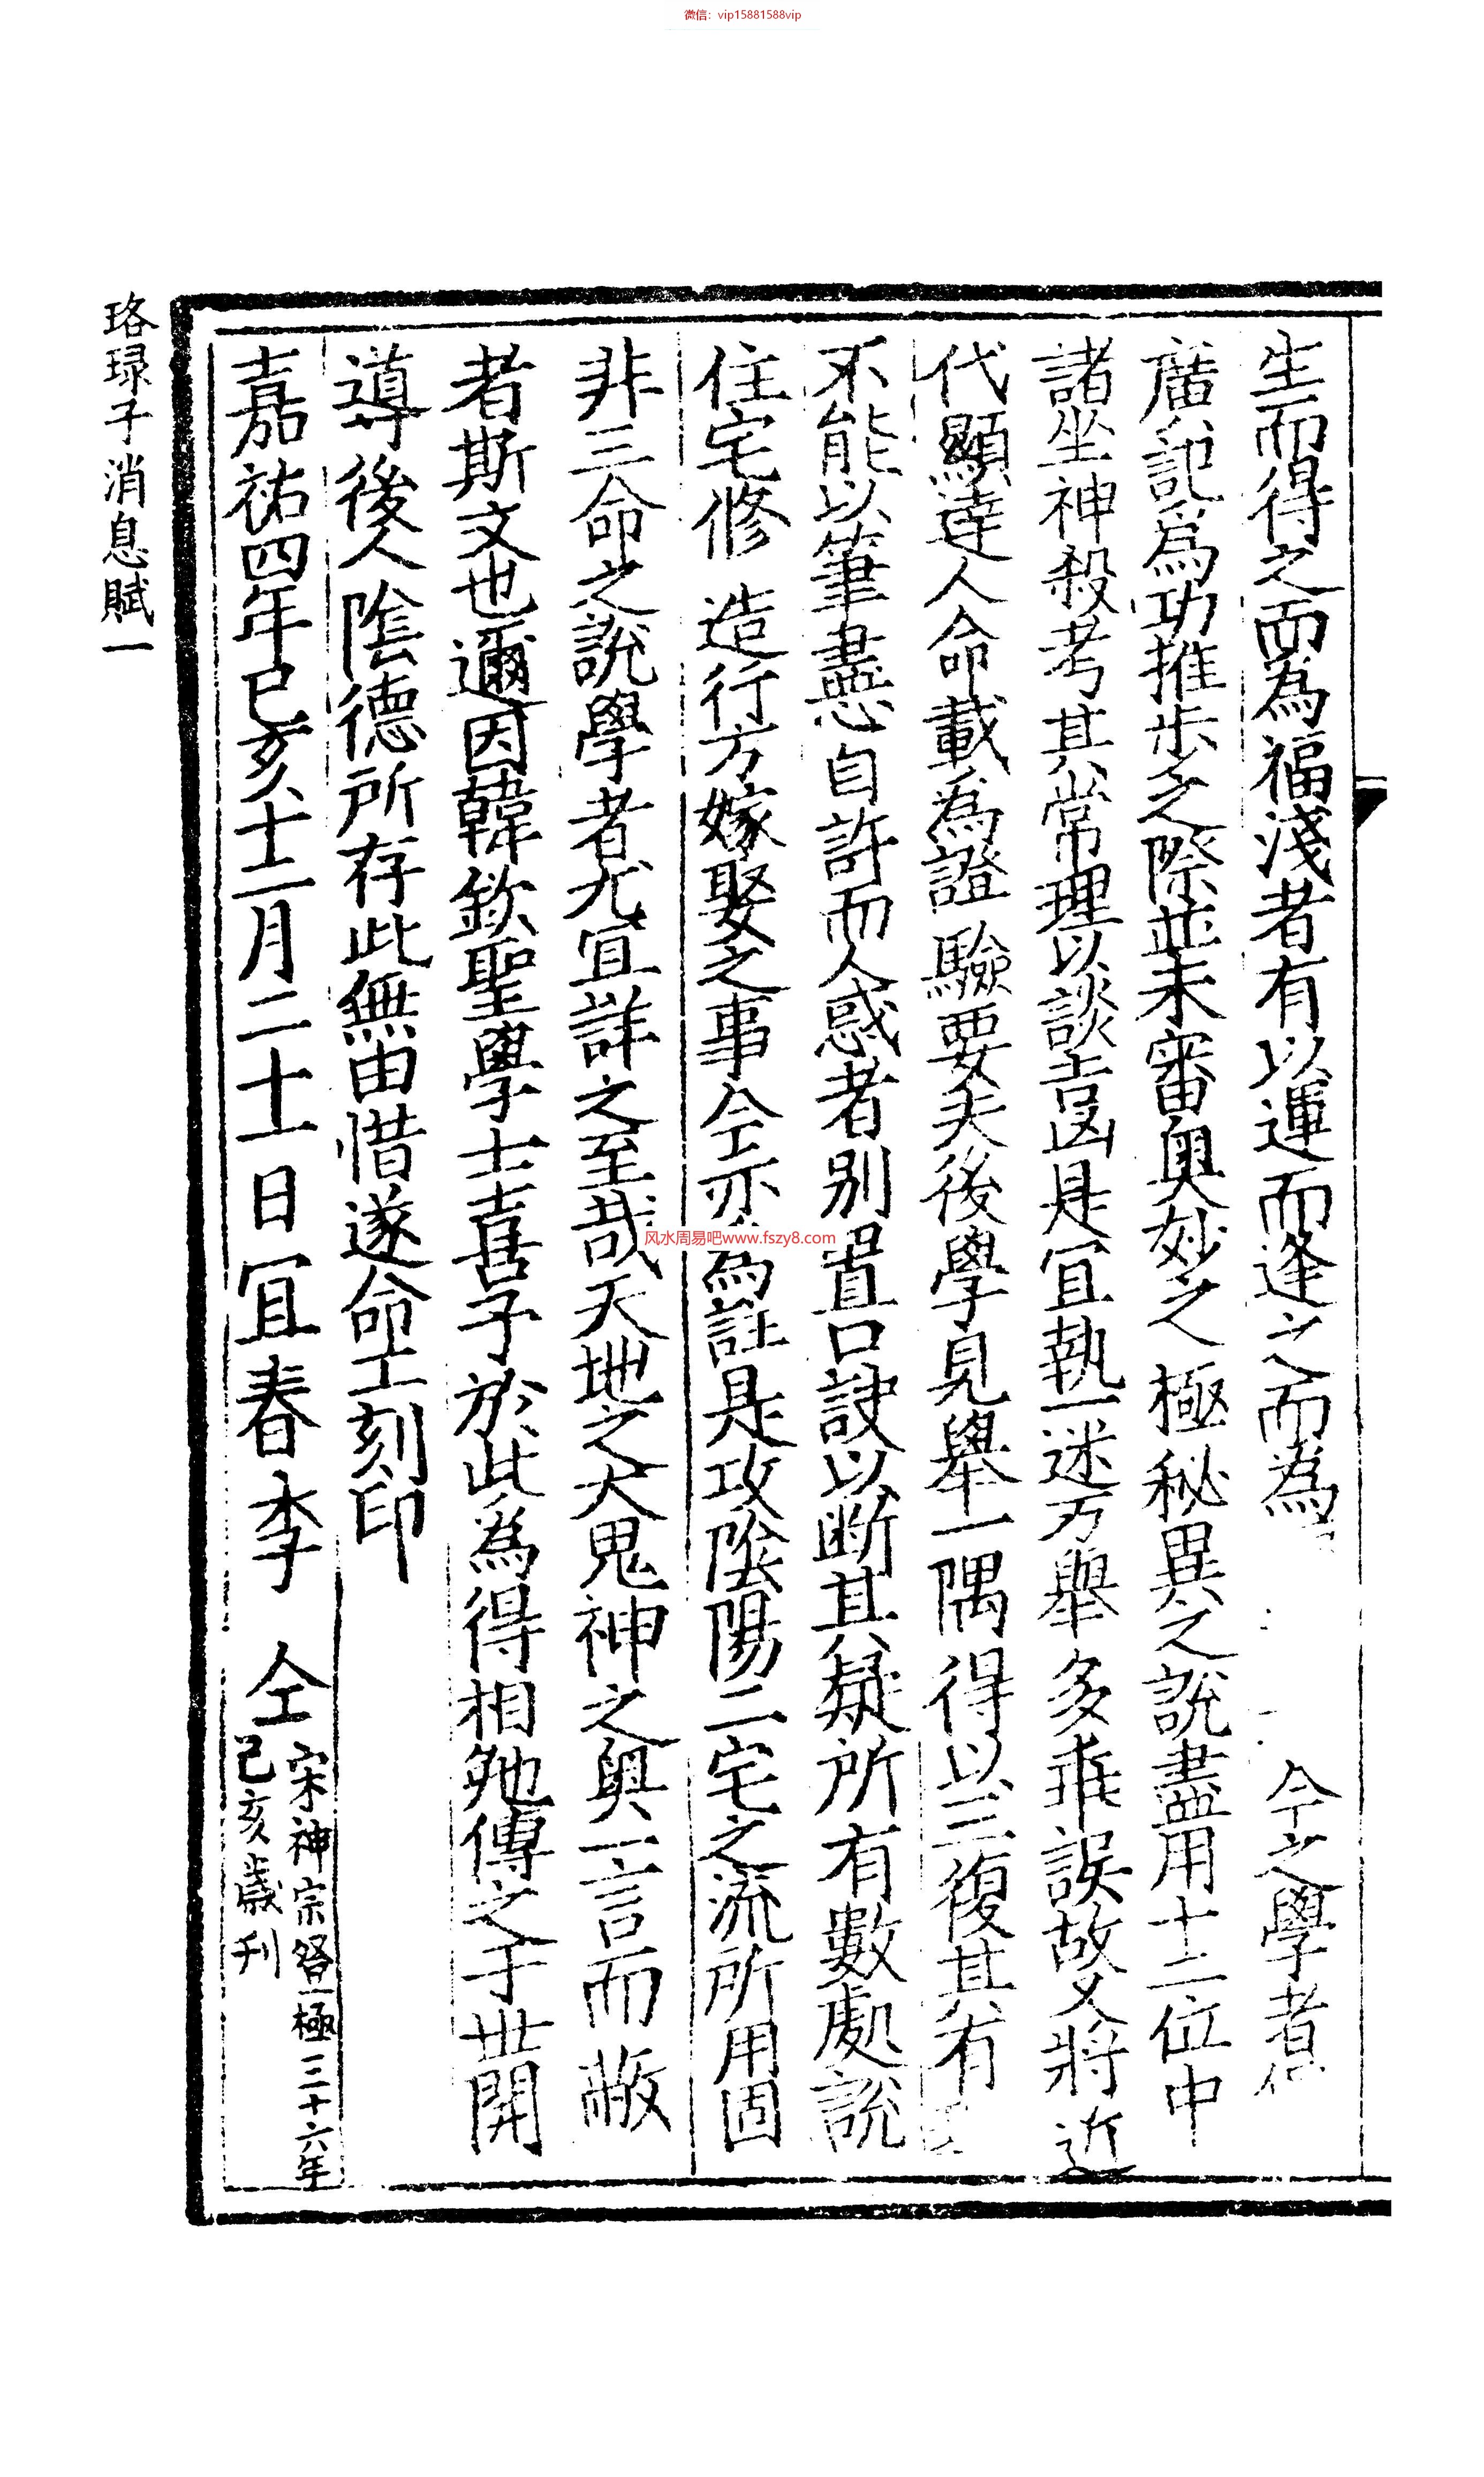 微信：vip15881588vip
生而得之而為福淺者有以運而逢之而為 今之學者
廣記爲功推步之際並未審奧妙之極秘異之說盡用十二位中
諸坐神殺考其常理以談吉凶是宜執一迷万舉多乖誤故又將近
代顯達人命載為證驗要夫後學見舉一隅得以三復其有
不能以筆盡悉自許而人惑者別置口訣以断其疑所有數處說
住宅修造行方嫁娶之事仝亦為註是攻陰陽二宅之流所用固
非三命之說學者尤宜詳之至哉天地之大鬼神之奧一言而蔽
者斯文也邇因韓欽聖學士喜予於此為得相勉傳之于世開
導後人陰德所存此無由惜遂命工刻印
嘉祐四年已亥十二月二十一日宜春李 仝
宋神宗登極三十六年
己亥歲刊
珞琭子消息賦一
风水周易吧www.fszy8.com